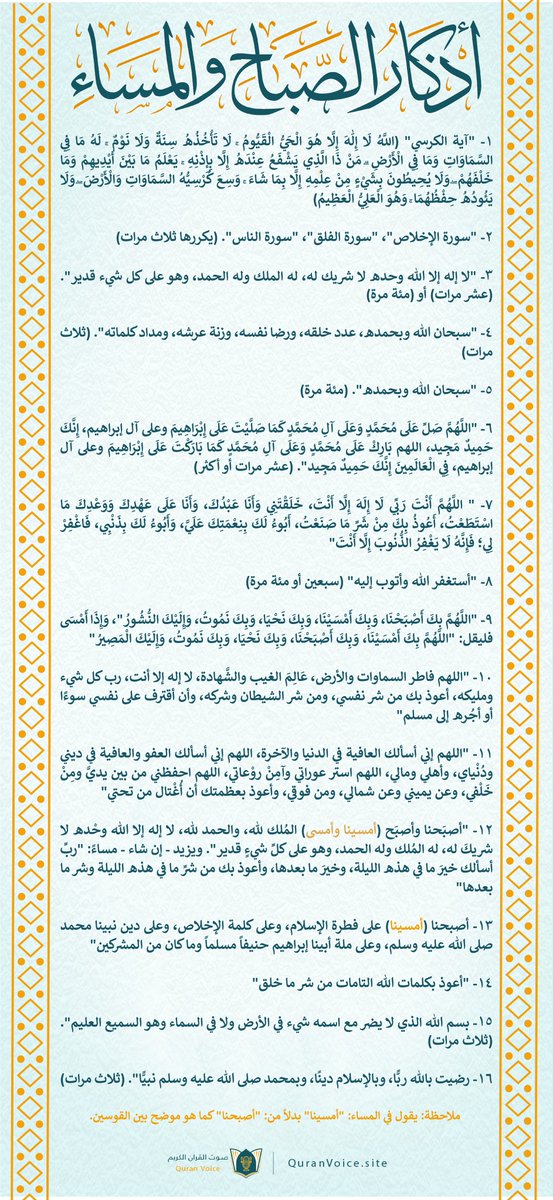 أذكار الصباح والمساء
١- "آية الكرسي" (اللَّهُ لَا إِلَٰهَ إِلَّا هُوَ الْحَيُّ الْقَيُّومُ ۚ لَا تَأْخُذُهُ سِنَةٌ وَلَا نَوْمٌ ۚ لَهُ مَا فِي
السَّمَاوَاتِ وَمَا فِي الْأَرْضِ ۗ مَنْ ذَا الَّذِي يَشْفَعُ عِنْدَهُ إِلَّا بِإِذْنِهِ ۚ يَعْلَمُ مَا بَيْنَ أَيْدِيهِمْ وَمَا
خَلْفَهُمْ ۖ وَلَا يُحِيطُونَ بِشَيْءٍ مِنْ عِلْمِهِ إِلَّا بِمَا شَاءَ ۚ وَسِعَ كُرْسِيُّهُ السَّمَاوَاتِ وَالْأَرْضَ ۖ وَلَا
يَئُودُهُ حِفْظُهُمَا ۚ وَهُوَ الْعَلِيُّ الْعَظِيمُ)
٢- "سورة الإخلاص"، "سورة الفلق"، "سورة الناس". (يكررها ثلاث مرات)
٣- "لا إله إلا الله وحده لا شريك له، له الملك وله الحمد، وهو على كل شيء قدير".
(عشر مرات) أو (مئة مرة)
٤- "سبحان الله وبحمده، عدد خلقه، ورضا نفسه، وزنة عرشه، ومداد كلماته". (ثلاث
مرات)
٥- "سبحان الله وبحمده". (مئة مرة)
٦- "اللَّهُمَّ صَلِّ عَلَى مُحَمَّدٍ وَعَلَى آلِ مُحَمَّدٍ كَمَا صَلَّيْتَ عَلَى إِبْرَاهِيمَ وعلى آل إبراهيم، إِنَّكَ
حَمِيدٌ مَجِيد، اللهم بَارِكْ عَلَى مُحَمَّدٍ وَعَلَى آلِ مُحَمَّدٍ كَمَا بَارَكْتَ عَلَى إِبْرَاهِيمَ وعلى آل
إبراهيم، فِي الْعَالَمِينَ إِنَّكَ حَمِيدٌ مَجِيد". (عشر مرات أو أكثر)
٧- " اللَّهُمَّ أَنْتَ رَبِّي لَا إِلَهَ إِلَّا أَنْتَ، خَلَقْتَنِي وَأَنَا عَبْدُكَ، وَأَنَا عَلَى عَهْدِكَ وَوَعْدِكَ مَا
اسْتَطَعْتُ، أَعُوذُ بِكَ مِنْ شَرِّ مَا صَنَعْتُ، أَبُوءُ لَكَ بِنِعْمَتِكَ عَلَيَّ، وَأَبُوءُ لَكَ بِذَنْبِي، فَاغْفِرْ
لِي؛ فَإِنَّهُ لَا يَغْفِرُ الذُّنُوبَ إِلَّا أَنْتَ"
٨- "أستغفر الله وأتوب إليه" (سبعين أو مئة مرة)
٩- "اللَّهُمَّ بِكَ أَصْبَحْنَا، وَبِكَ أَمْسَيْنَا، وَبِكَ نَحْيَا، وَبِكَ نَمُوتُ، وَإِلَيْكَ النُّشُورُ"، وَإِذَا أَمْسَى
فليقل: "اللَّهُمَّ بِكَ أَمْسَيْنَا، وَبِكَ أَصْبَحْنَا، وَبِكَ نَحْيَا، وَبِكَ نَمُوتُ، وَإِلَيْكَ الْمَصِيرُ"
١٠- "اللهم فاطر السماوات والأرض، عَالِمَ الغيب والشَّهادة، لا إله إلا أنت، رب كل شيء
ومليكه، أعوذ بك من شر نفسي، ومن شر الشيطان وشركه، وأن أقترف على نفسي سوءًا
أو أجُره إلى مسلم"
١١- "اللهم إني أسألك العافية في الدنيا والآخرة، اللهم إني أسألك العفو والعافية في ديني
ودُنْياي، وأهلي ومالي، اللهم استر عوراتي وآمِنْ روْعاتي، اللهم احفظني من بين يديَّ ومِنْ
خَلْفي، وعن يميني وعن شمالي، ومن فوقي، وأعوذ بعظمتك أن أُغْتال من تحتي"
١٢- "أصبَحنا وأصبَح (أمسينا وأمسى) المُلك لله، والحمد لله، لا إله إلا الله وحْده لا
شريكَ له، له المُلك وله الحمد، وهو على كلِّ شيءٍ قدير". ويزيد - إن شاء - مساءً: "ربِّ
أسألك خيرَ ما في هذه الليلة، وخيرَ ما بعدها، وأعوذ بك من شرِّ ما في هذه الليلة وشر ما
بعدها"
١٣- أصبحنا (أمسينا) على فطرة الإسلام، وعلى كلمة الإخلاص، وعلى دين نبينا محمد
صلى الله عليه وسلم، وعلى ملة أبينا إبراهيم حنيفاً مسلماً وما كان من المشركين"
١٤- "أعوذ بكلمات الله التامات من شر ما خلق"
١٥- بسم الله الذي لا يضر مع اسمه شيء في الأرض ولا في السماء وهو السميع العليم".
(ثلاث مرات)
١٦- رضيت بالله ربًّا، وبالإسلام دينًا، وبمحمد صلى الله عليه وسلم نبيًّا". (ثلاث مرات)
ملاحظة: يقول في المساء: "أمسينا" بدلاً من: "أصبحنا" كما هو موضح بين القوسين.
صوت القرآن الكريم
Quran Voice
QuranVoice.site